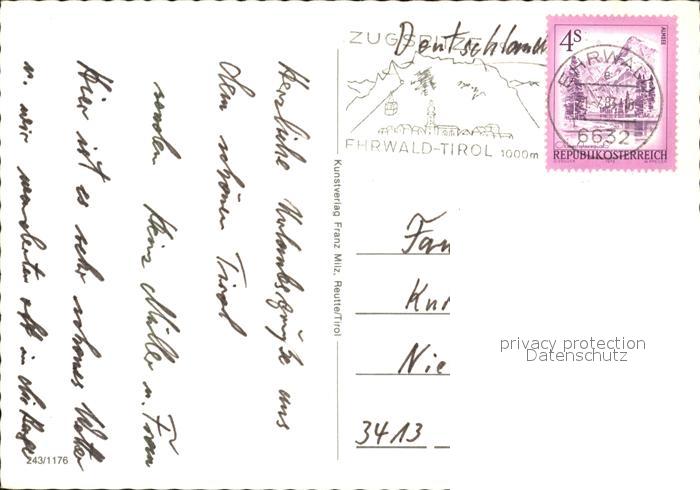 Herzliche Urlaubsgrüße aus
dem schönen Tirol
senden Heinz Müller u. Frau
Hier ist es sehr schönes Wetter
u. wir wanderten oft in die Berge
243/1176
Kunstverlag Franz Milz, Reutte/Tirol
Deutschland
ZUGSPITZE
EHRWALD-TIROL 1000m
4S
ALMSEE
EHRWALD
6632
REPUBLIK ÖSTERREICH
Fam
Kur
Nie
3413
privacy protection
Datenschutz